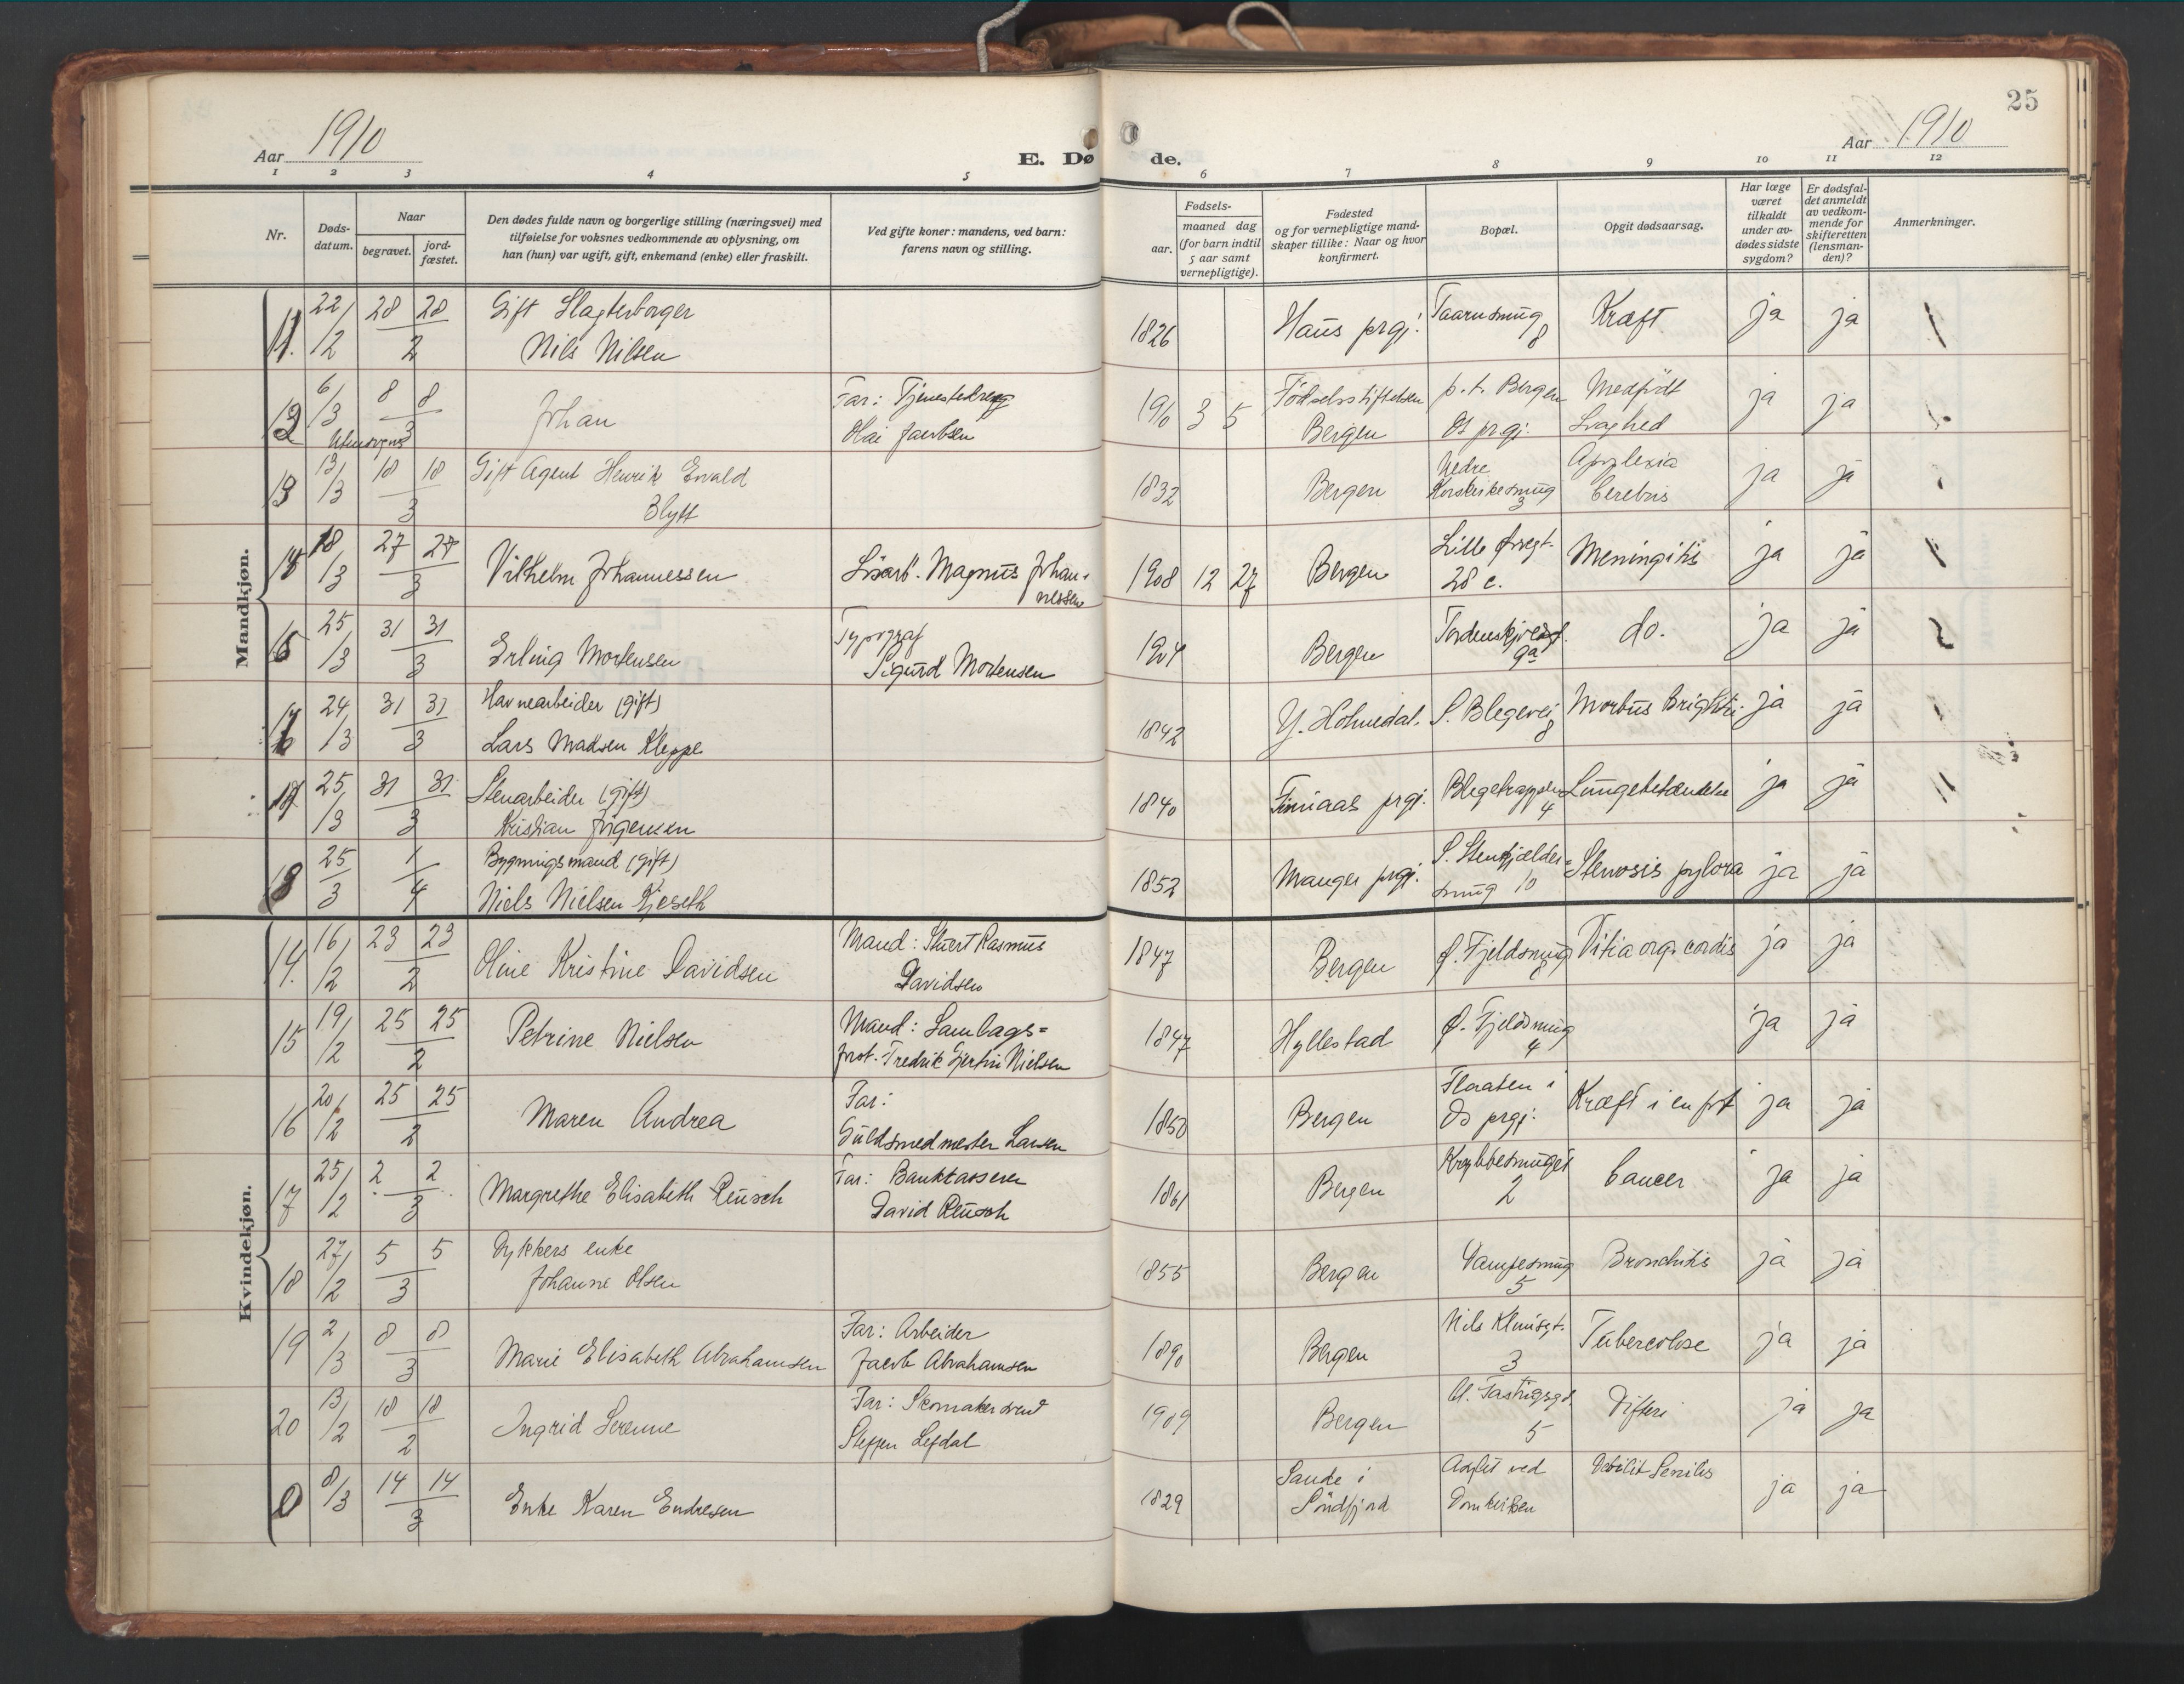 25
Aar 1910
E. Dø de.
Aar 1910
1 2 3 4 5 6 7 8 9 10 11 12
Nr.
Døds-datum.
Naar
begravet.
jord-fæstet.
Den dødes fulde navn og borgerlige stilling (næringsvei) med
tilføielse for voksnes vedkommende av oplysning, om
han (hun) var ugift, gift, enkemand (enke) eller fraskilt.
Ved gifte koner: mandens, ved barn:
farens navn og stilling.
Fødsels-
aar.
maaned dag
(for barn indtil
5 aar samt
vernepligtige).
Fødested
og for vernepligtige mand-
skaper tillike: Naar og hvor
konfirmert.
Bopæl.
Opgit dødsaarsag.
Har læge
været
tilkaldt
under av-
dødes sidste
sygdom?
Er dødsfal-
det anmeldt
av vedkom-
mende for
skifteretten
(lensman-
den)?
Anmerkninger.
Mandkjøn.
11. 22/12 28 28 2 Gift Slagterborger 1826 Haus prgj. Taarnsmug 8 Kræft ja ja
Nils Nilsen
12 6/3 8 8 3 Johan Far: Tjenestedreng 1910 3 5 Fødselsstiftelsen p.t. Bergen Medfødt ja ja
Olai Jacobsen Bergen Os prgj. Svaghed
13 13/3 18 18 3 Gift Agent Henrik Ewald 1832 Bergen Nedre Korskirkesmug 3 Apoplexia ja ja
Blytt Cerebris
18/3 27 27 3 Vilhelm Johannessen Løsarb. Magnus Johan- 1908 12 27 Bergen Lille Øvregt. Meningitis ja ja
nessen 28 c.
25/3 31 31 3 Erling Mortensen Typograf 1904 Bergen Tordenskjoldsgt. 9a do. ja ja
Sigurd Mortensen
24/3 31 31 3 Havnearbeider (gift) 1842 Y. Holmedal. S. Blegevei 8 Morbus Brightii ja ja
Lars Madsen Kleppe
25/3 31 31 3 Stenarbeider (gift) 1840 Finnaas prgj. Blegetrappen 4 Lungebetændelse ja ja
Kristian Jørgensen
25/3 1/4 Bygningsmand (gift) 1852 Manger prgj. S. Stenkjelder- Stenosis pylora ja ja
Niels Nielsen Kjeseth smug 10
Kvindekjøn.
14. 16/2 23 23 2 Oline Kristine Davidsen Mand: Stuert Rasmus 1847 Bergen Ø. Fjeldsmug Vitia org. cordis ja ja
Davidsen
15 19/2 25 25 2 Petrine Nielsen Mand: Samlags= 1847 Hyllestad Ø. Fjeldsmug 4 ja ja
Fredrik Gjertin Nielsen
16 20/2 25 25 2 Maren Andrea Far: 1850 Bergen Flaaten i Kræft i en fot ja ja
Guldsmedmester Larsen Os prgj.
17 25/2 2 2 3 Margrethe Elisabeth Reusch Far: Bankkasserer 1861 Bergen Krybbesmuget 2 Cancer ja ja
David Reusch
18 27/2 5 5 3 Dykkers enke 1855 Bergen Vampesmug 5 Bronchitis ja ja
Johanne Olsen
19 2/3 8 8 3 Marie Elisabeth Abrahamsen Far: Arbeider 1890 Bergen Nils Klimsgt. 3 Tuberculose ja ja
Jacob Abrahamsen
20 13/2 18 18 2 Ingrid Serenne Far: Skomakersvend 1909 Bergen 5 Difteri ja ja
Steffen Lefdal
8/3 14 14 3 Enke Karen Endresen 1829 Sande i Asylet ved Debilit Senilis ja ja
Søndfjord Domkirken